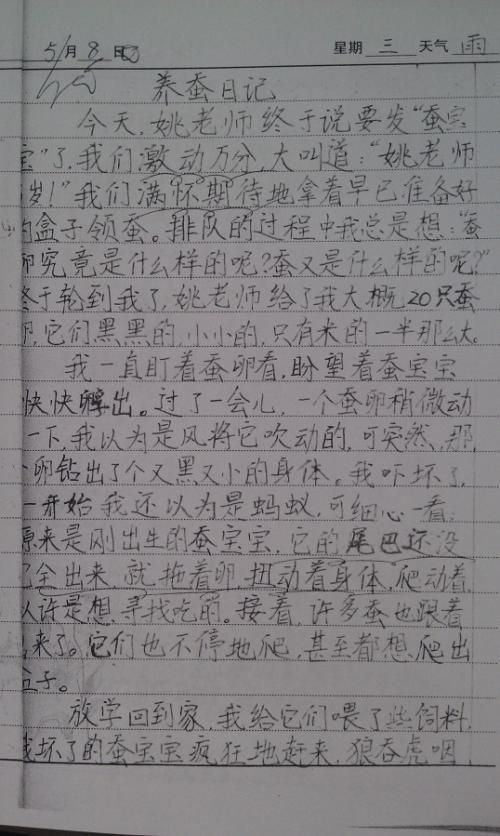 5月8日 星期 三 天气 雨
养蚕日记
今天,姚老师终于说要发“蚕宝
宝”了,我们激动万分,大叫道:“姚老师
岁!”我们满怀期待地拿着早已准备好
的盒子领蚕。排队的过程中我总是想:“蚕
卵究竟是什么样的呢?蚕又是什么样的呢?”
终于轮到我了,姚老师给了我大概20只蚕
卵,它们黑黑的,小小的,只有米的一半那么大。
我一直盯着蚕卵看,盼望着蚕宝宝
快快孵出。过了一会儿,一个蚕卵稍微动
一下,我以为是风将它吹动的,可突然,那
卵钻出了个又黑又小的身体。我吓坏了,
一开始我还以为是蚂蚁,可细心一看,
原来是刚出生的蚕宝宝,它的尾巴还没
完全出来,就拖着卵,扭动着身体,爬动着,
也许是想寻找吃的。接着,许多蚕也跟着
来了。它们也不停地爬,甚至都想爬出
盒子。
放学回到家,我给它们喂了些饲料,
饿坏了的蚕宝宝疯狂地赶来,狼吞虎咽